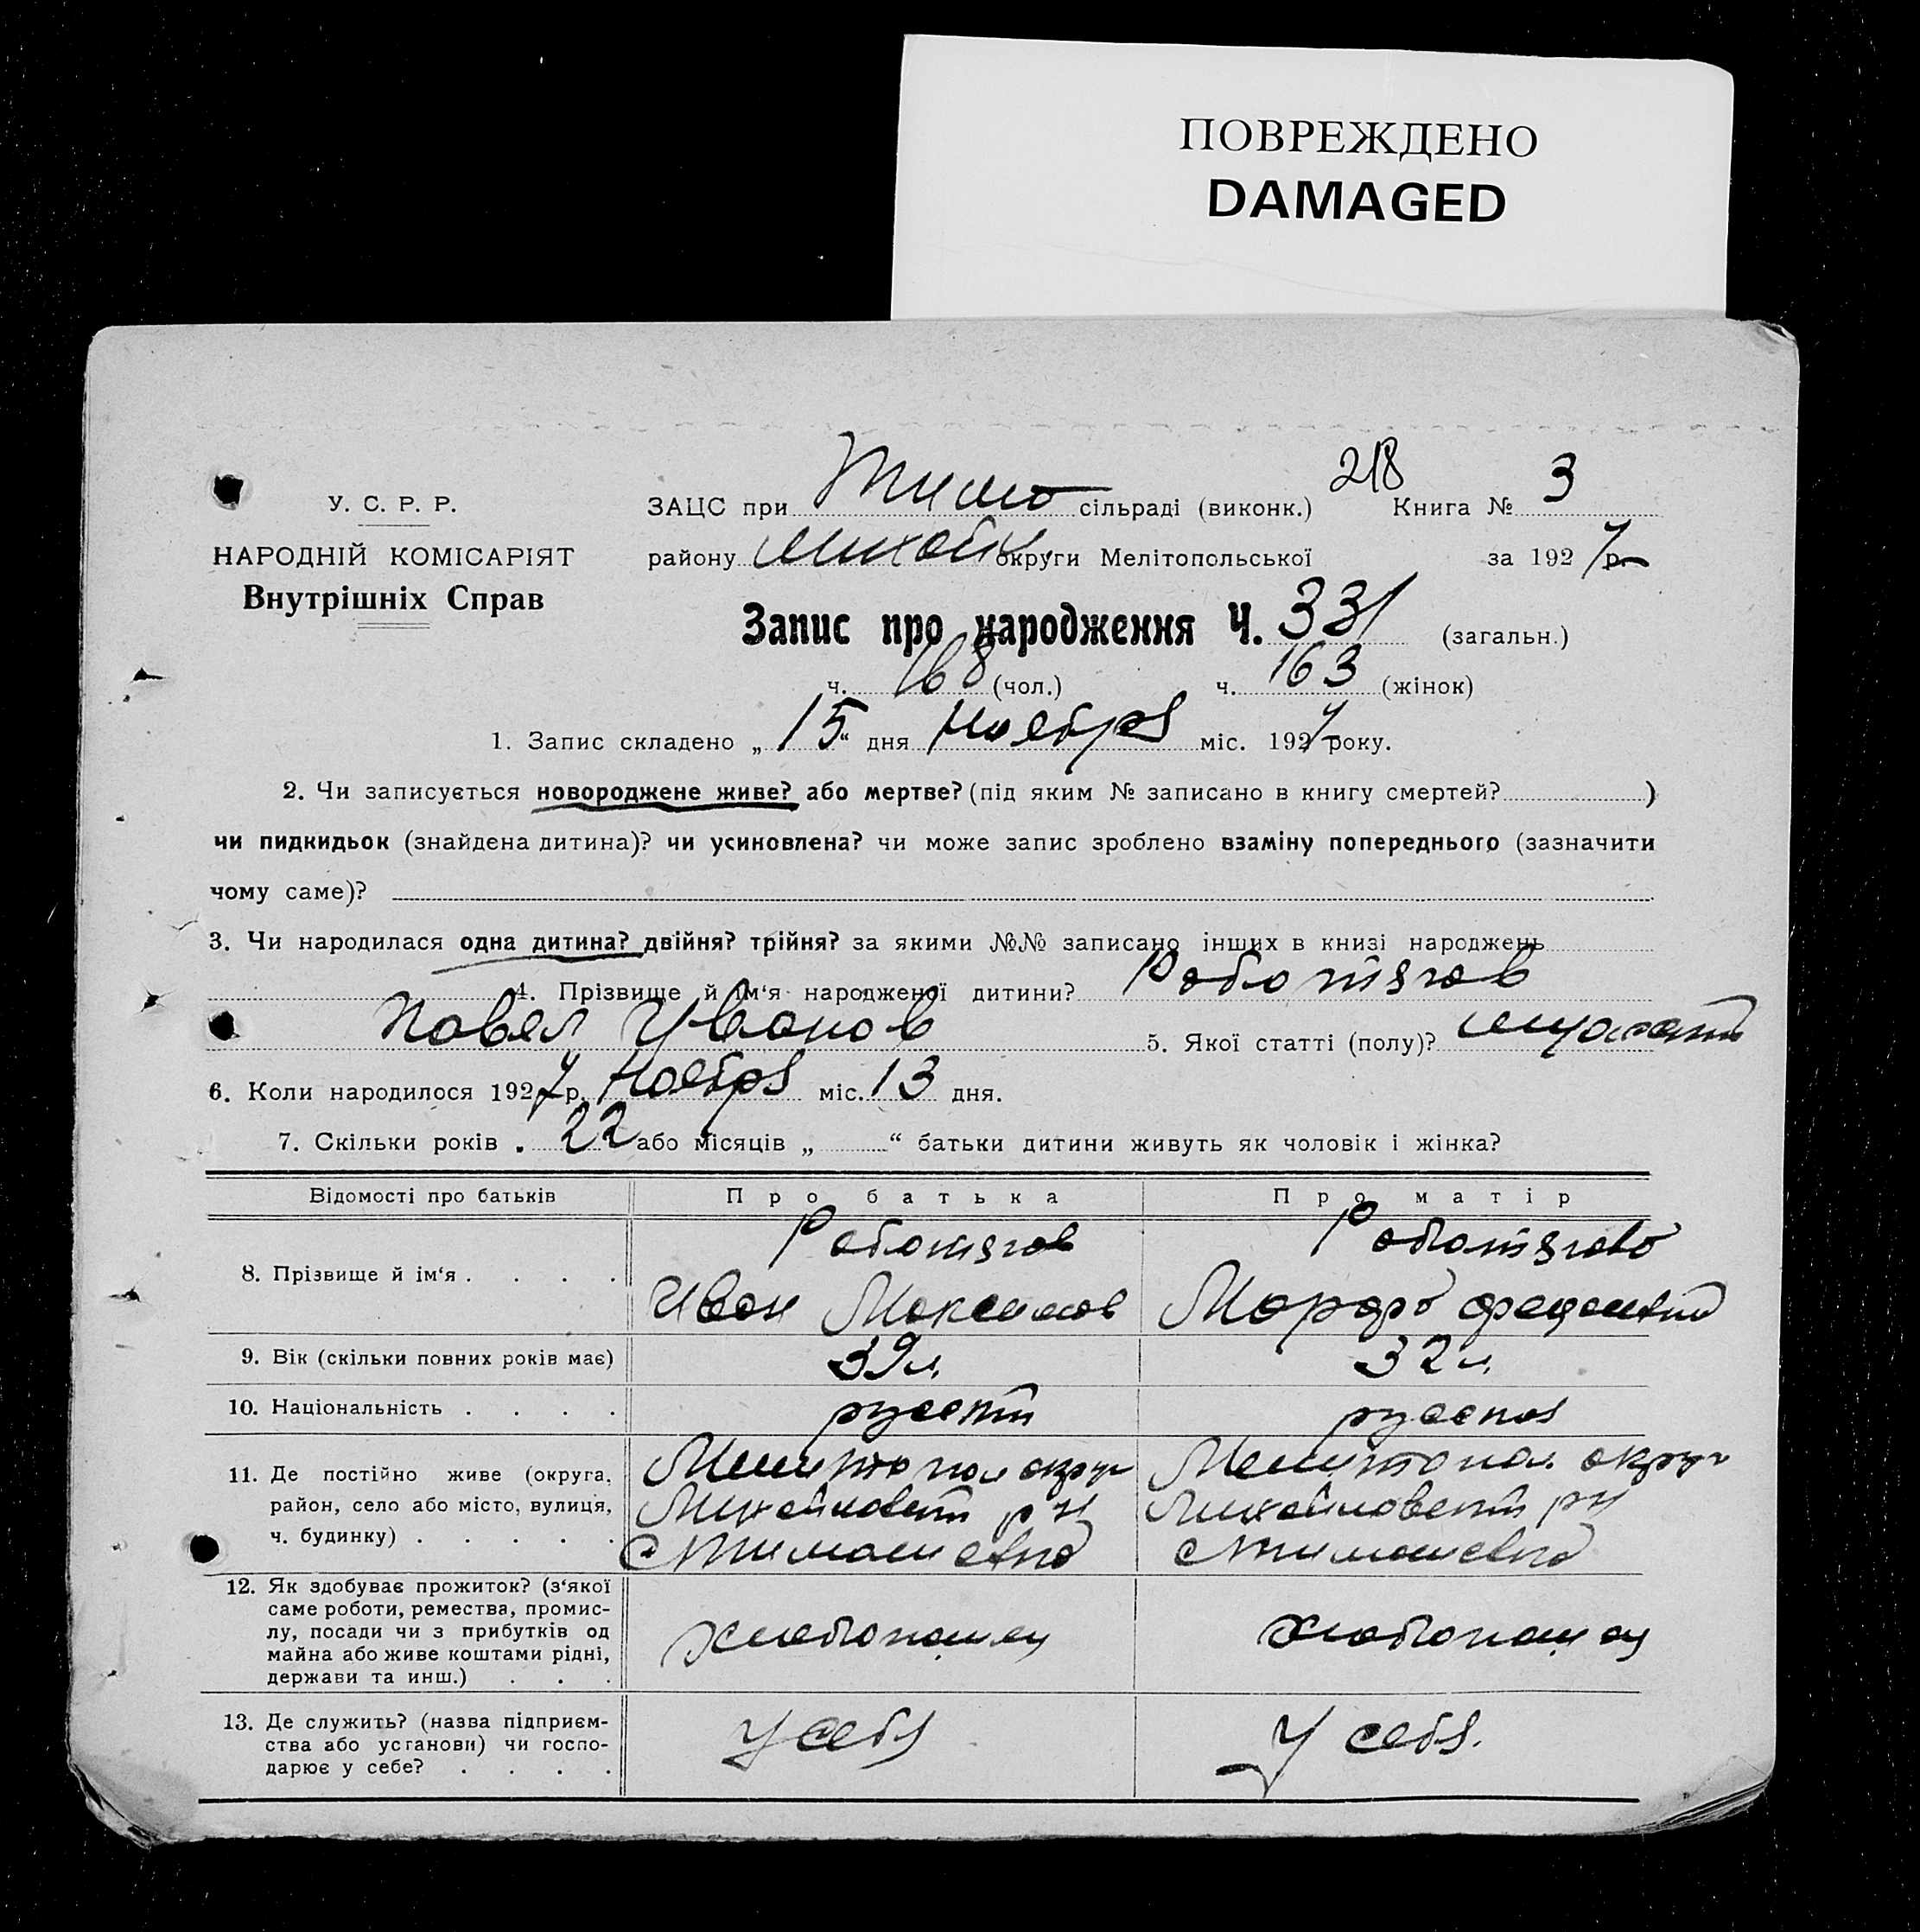 ПОВРЕЖДЕНО
DAMAGED
218
У. С. Р. Р.
ЗАЦС при Тимо сільраді (виконк.) Книга № 3
НАРОДНІЙ КОМІСАРІЯТ
району Михайл округи Мелітопольської за 1927 р.
Внутрішніх Справ
Запис про народження Ч. 331 (загальн.)
ч. 168 (чол.) ч. 163 (жінок)
1. Запис складено „ 15 “ дня Ноебря міс. 1927 року.
2. Чи записується новороджене живе? або мертве? (під яким № записано в книгу смертей? )
чи пидкидьок (знайдена дитина)? чи усиновлена? чи може запис зроблено взаміну попереднього (зазначити
чому саме)?
3. Чи народилася одна дитина? двійня? трійня? за якими №№ записано інших в книзі народжень
4. Прізвище й ім‘я народженої дитини? Работягов
Павел Иванов 5. Якої статті (полу)?
6. Коли народилося 1927 р. Ноебря міс. 13 дня.
7. Скільки років „ 22 або місяців „ “ батьки дитини живуть як чоловік і жінка?
Відомості про батьків
Про батька
Про матір
8. Прізвище й ім‘я . . . .
Работягов
Иван Максимов
Работягова
9. Вік (скільки повних років має)
39 л.
32 л.
10. Національність . . . .
руский
руская
11. Де постійно живе (округа,
район, село або місто, вулиця,
ч. будинку) . . . . .
Мелитопол округ
Михайловский р н
с Тимашевка
Мелитопол. округ
Михайловский рн
с Тимашевка
12. Як здобуває прожиток? (з‘якої
саме роботи, ремества, промис-
лу, посади чи з прибутків од
майна або живе коштами рідні,
держави та инш.) . . .
хлебопашец
хлебопашец
13. Де служить? (назва підприєм-
ства або установи) чи госпо-
дарює у себе? . . . .
У себя
У себя.